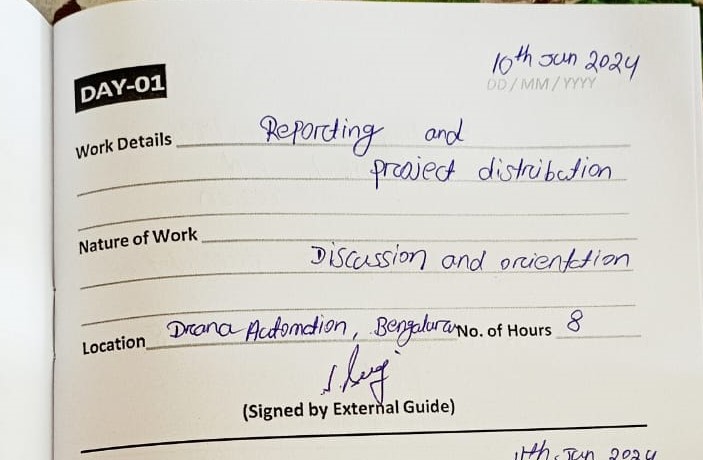 10th Jun 2024
DAY-01
DD/MM/YYYY
Work Details Reporting and
project distribution
Nature of Work
Discussion and orientation
Location Drona Automation, Bengaluru No. of Hours 8
(Signed by External Guide)
11th Jun 2024